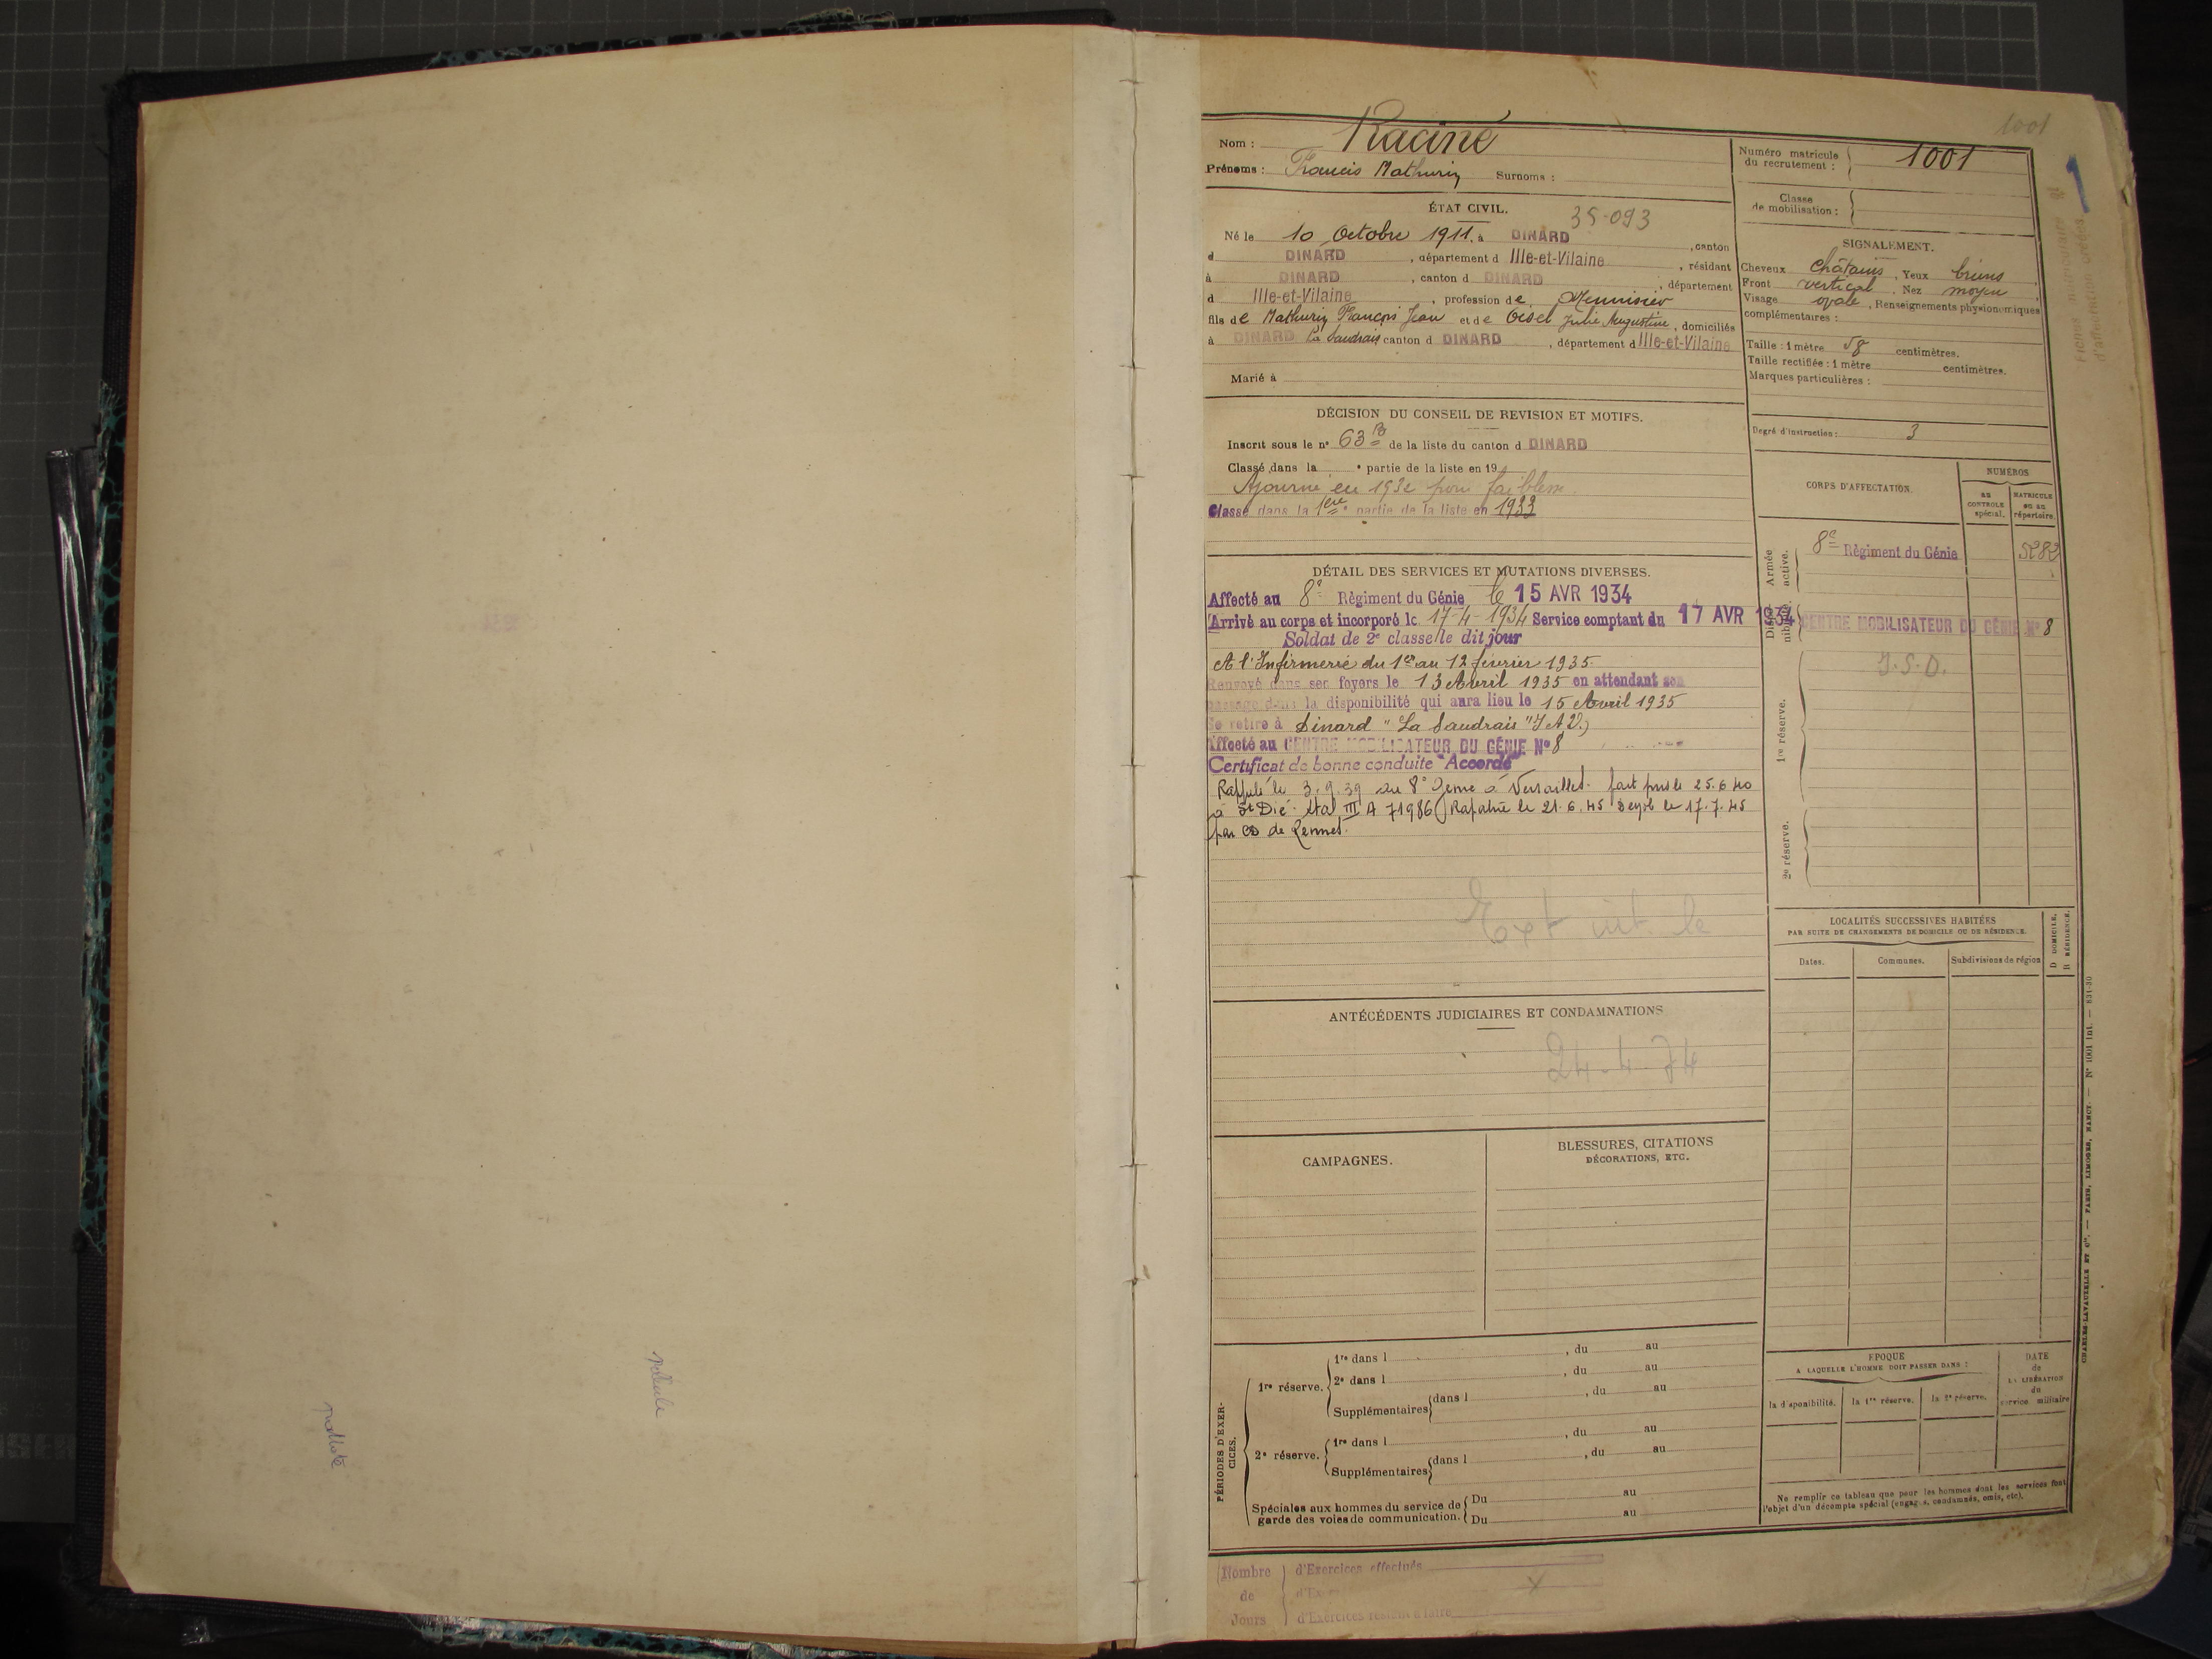 1001
1
Nom : Racine
Prénoms : Francis Mathurin Surnoms :
Numéro matricule du recrutement : 1001
Classe de mobilisation :
ÉTAT CIVIL. 35-093
Né le 10 Octobre 1911. à DINARD , canton
d DINARD , département d Ille-et-Vilaine , résidant
à DINARD , canton d DINARD , département
d Ille-et-Vilaine , profession de Menuisier
fils de Mathurin François Jean et de Orsel Julie Augustine , domiciliés
à DINARD La Saudrais canton d DINARD , département d Ille-et-Vilaine
Marié à
SIGNALEMENT.
Cheveux châtains , Yeux bruns
Front vertical , Nez moyen
Visage ovale , Renseignements physionomiques
complémentaires :
Taille : 1 mètre 58 centimètres.
Taille rectifiée : 1 mètre centimètres.
Marques particulières :
Degré d'instruction : 3
DÉCISION DU CONSEIL DE REVISION ET MOTIFS.
Inscrit sous le n° 63 B de la liste du canton d DINARD
Classé dans la e partie de la liste en 19
Ajourné en 1932 pour faiblesse
Classé dans la 1ère partie de la liste en 1933
DÉTAIL DES SERVICES ET MUTATIONS DIVERSES.
Affecté au 8e Régiment du Génie le 15 AVR 1934
Arrivé au corps et incorporé le 17-4-1934 Service comptant du 17 AVR 1934
Soldat de 2e classe le dit jour
A l'Infirmerie du 1er au 12 février 1935.
Renvoyé dans ses foyers le 13 Avril 1935 en attendant son
passage dans la disponibilité qui aura lieu le 15 Avril 1935
Se retire à Dinard "La Saudrais" (I et V.)
Affecté au CENTRE MOBILISATEUR DU GÉNIE N° 8
Certificat de bonne conduite "Accordé"
Rappelé le 3.9.39 au 8e Génie à Versailles. fait pris le 25.6.40
à St Dié. Stal III A 71986 Rapatrié le 21.6.45 Démob le 17.7.45
par CD de Rennes.
Ext le
CORPS D'AFFECTATION
NUMÉROS
au CONTROLE spécial.
MATRICULE ou au répertoire.
Armée active.
8e Régiment du Génie 5282
CENTRE MOBILISATEUR DU GÉNIE N° 8
1re réserve.
2e réserve.
LOCALITÉS SUCCESSIVES HABITÉES
PAR SUITE DE CHANGEMENTS DE DOMICILE OU DE RÉSIDENCE.
D DOMICILE.
R RÉSIDENCE.
Dates. Communes. Subdivisions de région
ANTÉCÉDENTS JUDICIAIRES ET CONDAMNATIONS
24-4-74
CAMPAGNES.
BLESSURES, CITATIONS
DÉCORATIONS, ETC.
PÉRIODES D'EXERCICES.
1re réserve.
1re dans l , du au
2e dans l , du au
Supplémentaires dans l , du au
2e réserve.
1re dans l , du au
Supplémentaires dans l , du au
Spéciales aux hommes du service de garde des voies de communication.
Du au
Du au
EPOQUE
A LAQUELLE L'HOMME DOIT PASSER DANS :
la disponibilité. la 1re réserve. la 2e réserve.
DATE
de
LA LIBÉRATION
du
service militaire
Ne remplir ce tableau que pour les hommes dont les services font
l'objet d'un décompte spécial (engagés, condamnés, omis, etc).
CHARLES-LAVAUZELLE ET Cie. — PARIS, LIMOGES, NANCY. — N° 1001 Int. — 831-30
Nombre
de
Jours
d'Exercices effectués
d'Exercices restant à faire